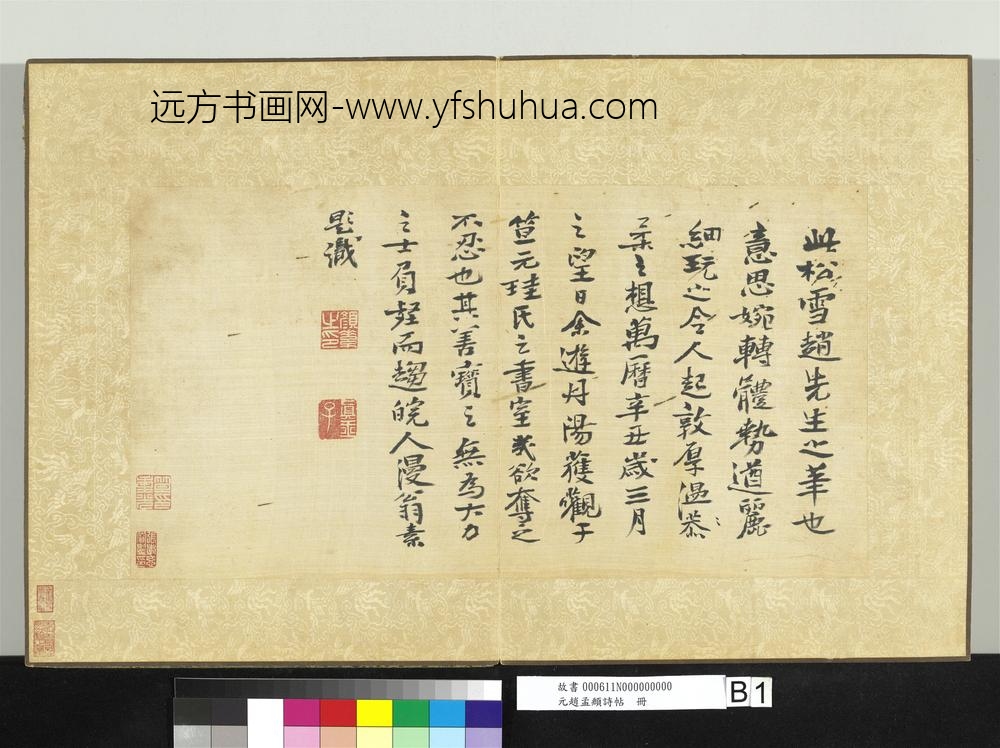 远方书画网-www.yfshuhua.com
此松雪趙先生之筆也
意思婉轉體勢遒麗
細玩之令人起敦厚溫恭
柔之想萬曆辛丑歲三月
之望日余遊丹陽獲觀于
笪元珪氏之書室幾欲奪之
不忍也其善寶之無為大力
之士負趍而趨皖人漫翁素
題識
故書 000611N000000000
元趙孟頫詩帖 冊
B1